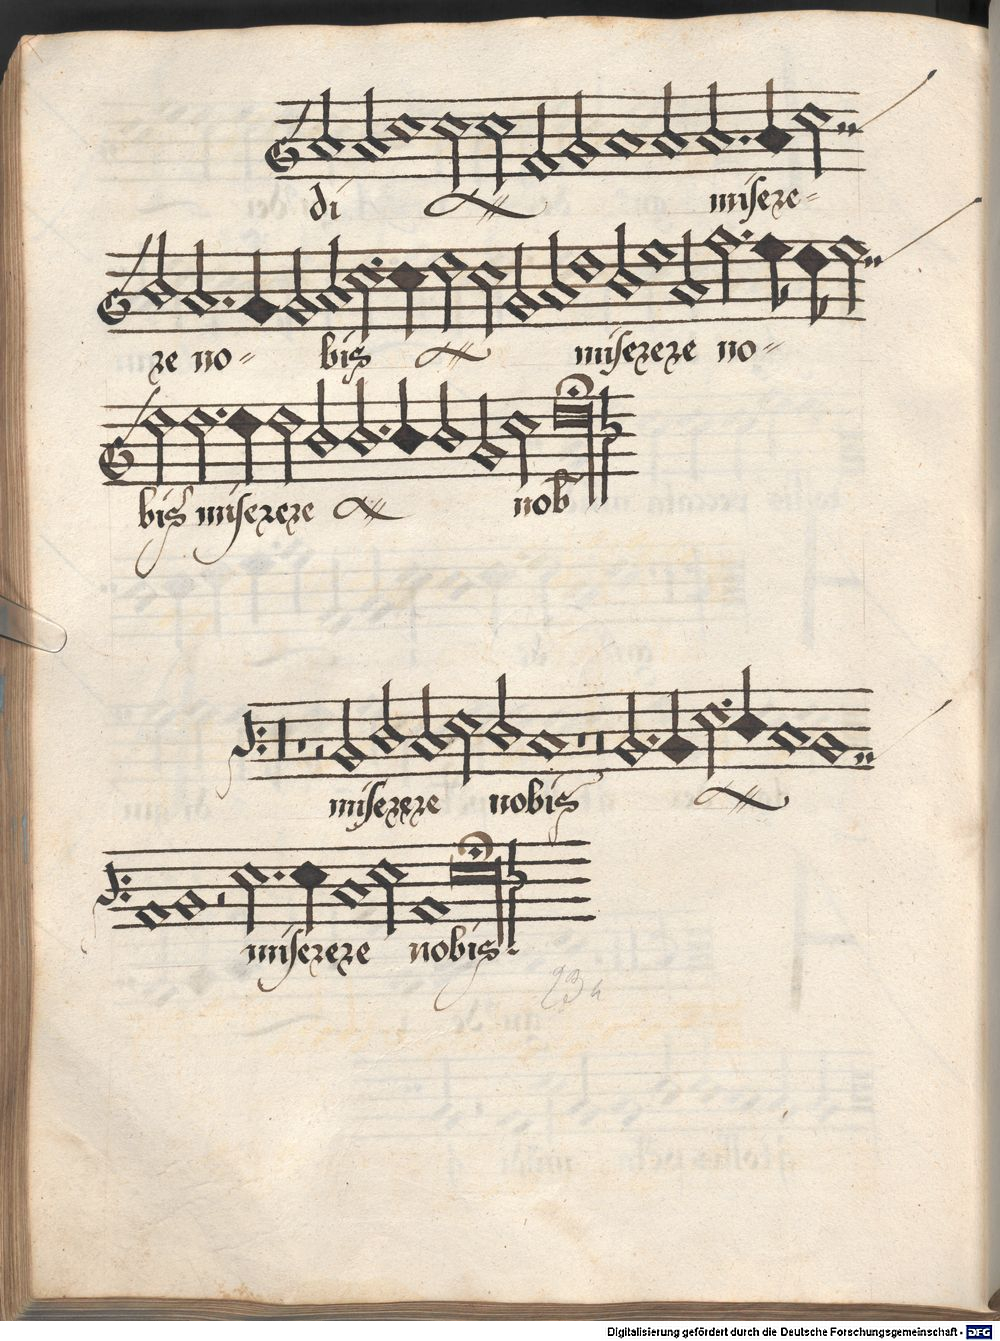 di misere-
re no- bis miserere no-
bis miserere nob
miserere nobis
miserere nobis.
Digitalisierung gefördert durch die Deutsche Forschungsgemeinschaft - DFG